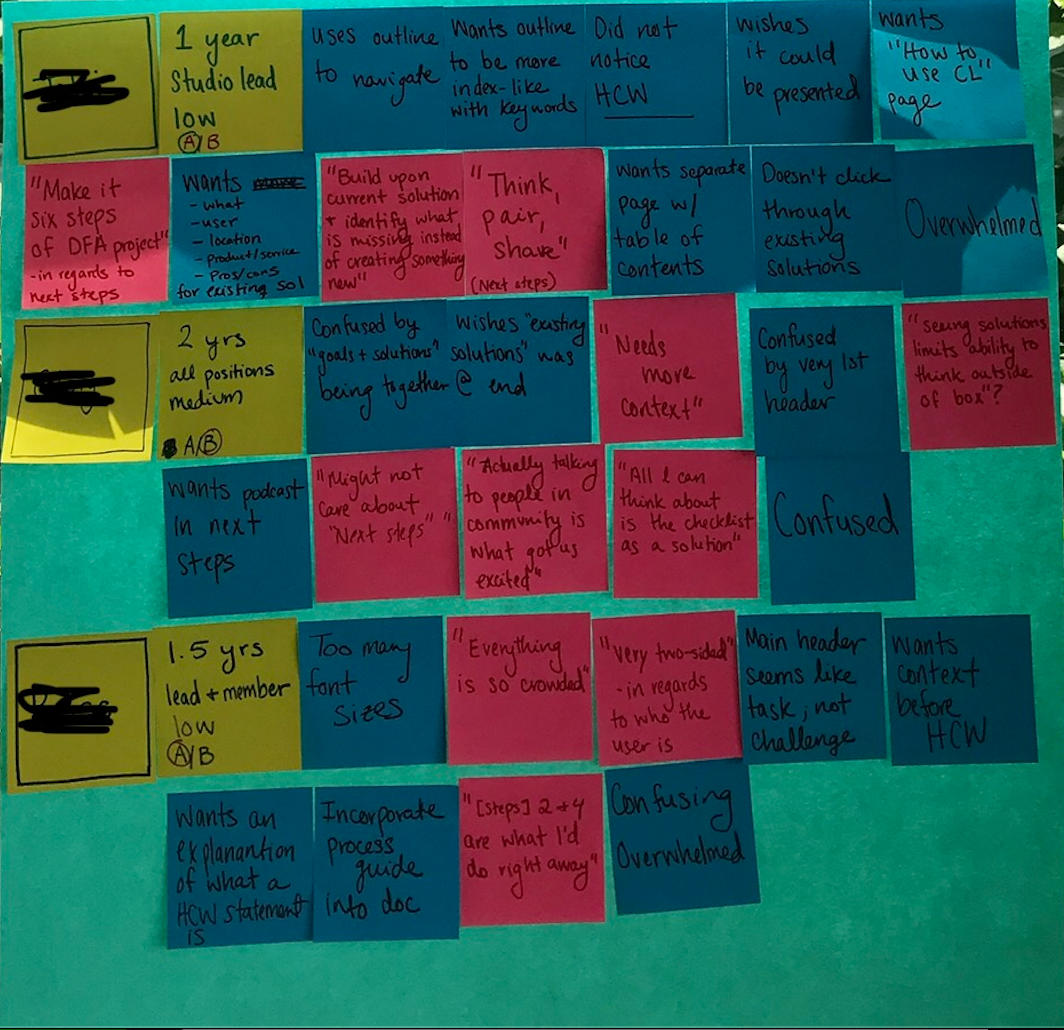 1 year
Studio lead
low
A/B
uses outline
to navigate
Wants outline
to be more
index-like
with keywords
Did not
notice
HCW
wishes
it could
be presented
wants
"How to
use CL"
page
"Make it
six steps
of DFA project"
-in regards to
next steps
wants
- what
-user
- location
- product/service
- Pros/cons
for existing sol
"Build upon
current solution
+ identify what
is missing instead
of creating something
new"
"Think,
pair,
share"
(Next steps)
wants separate
page w/
table of
contents
Doesn't click
through
existing
solutions
Overwhelmed
2 yrs
all positions
medium
A/B
Confused by
"goals + solutions"
being together
Wishes "existing
solutions" was
@ end
"Needs
more
context"
Confused
by very 1st
header
"seeing solutions
limits ability to
think outside
of box"?
wants podcast
in next
steps
"Might not
care about
"Next steps" "
"Actually talking
to people in
community is
what got us
excited"
"All I can
think about
is the checklist
as a solution"
Confused
1.5 yrs
lead + member
low
A/B
Too many
font
sizes
"Everything
is so crowded"
"very two-sided"
-in regards
to who the
user is
Main header
seems like
task, not
challenge
Wants
context
before
HCW
Wants an
explanantion
of what a
HCW statement
is
Incorporate
process
guide
into doc
"[steps] 2 + 4
are what I'd
do right away"
Confusing
Overwhelmed